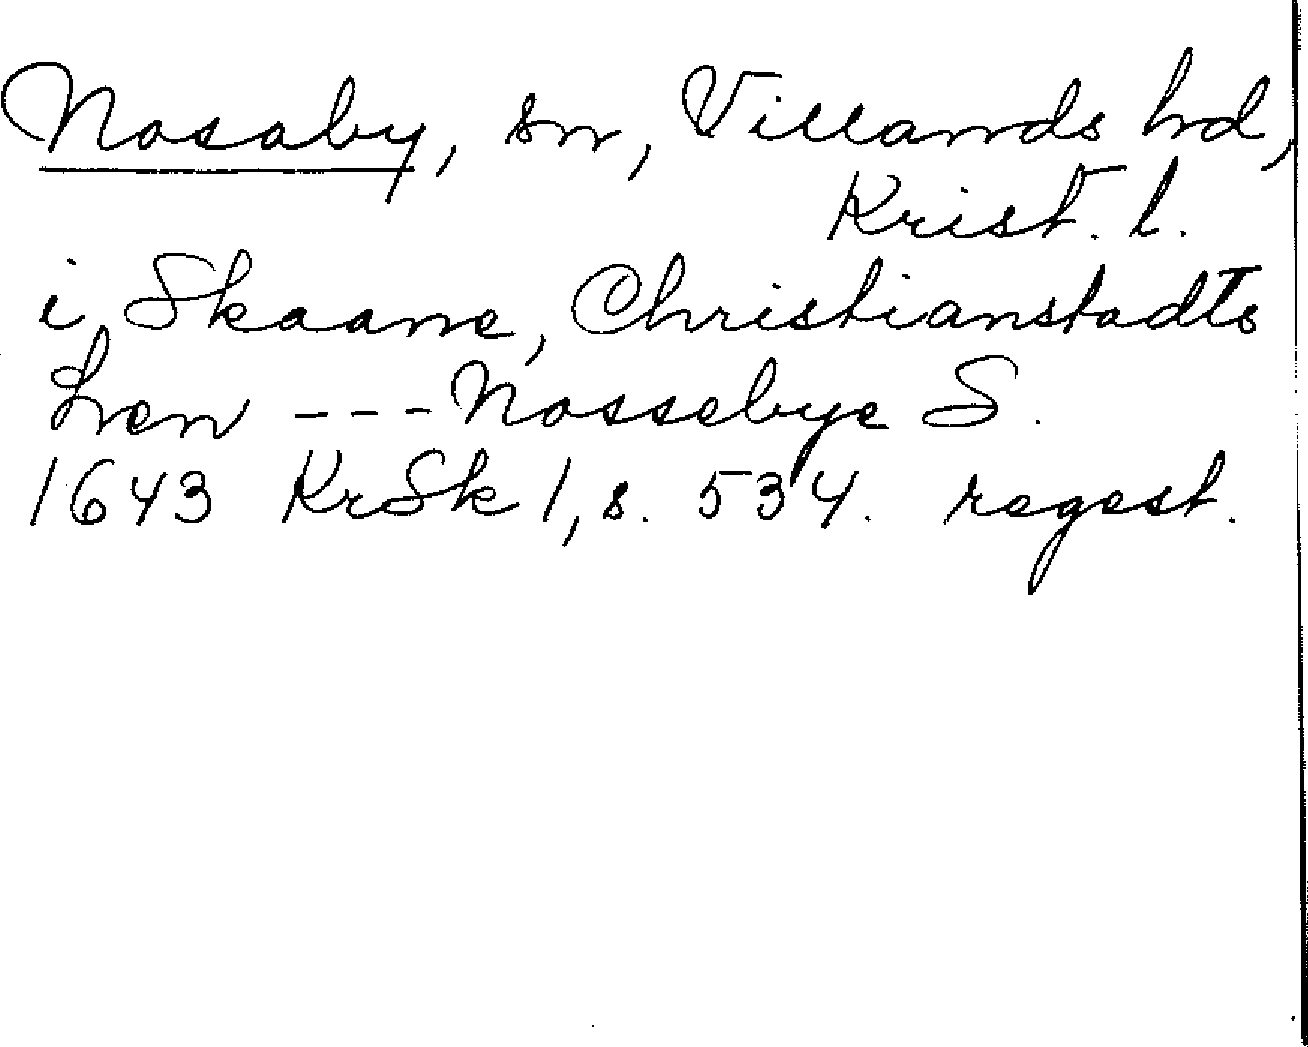 Nosaby, sn, Villands hd,
Krist. l.
i Skaane, Christianstadts
Læn --- Nossebye S.
1643 KrSk 1, s. 534. regest.